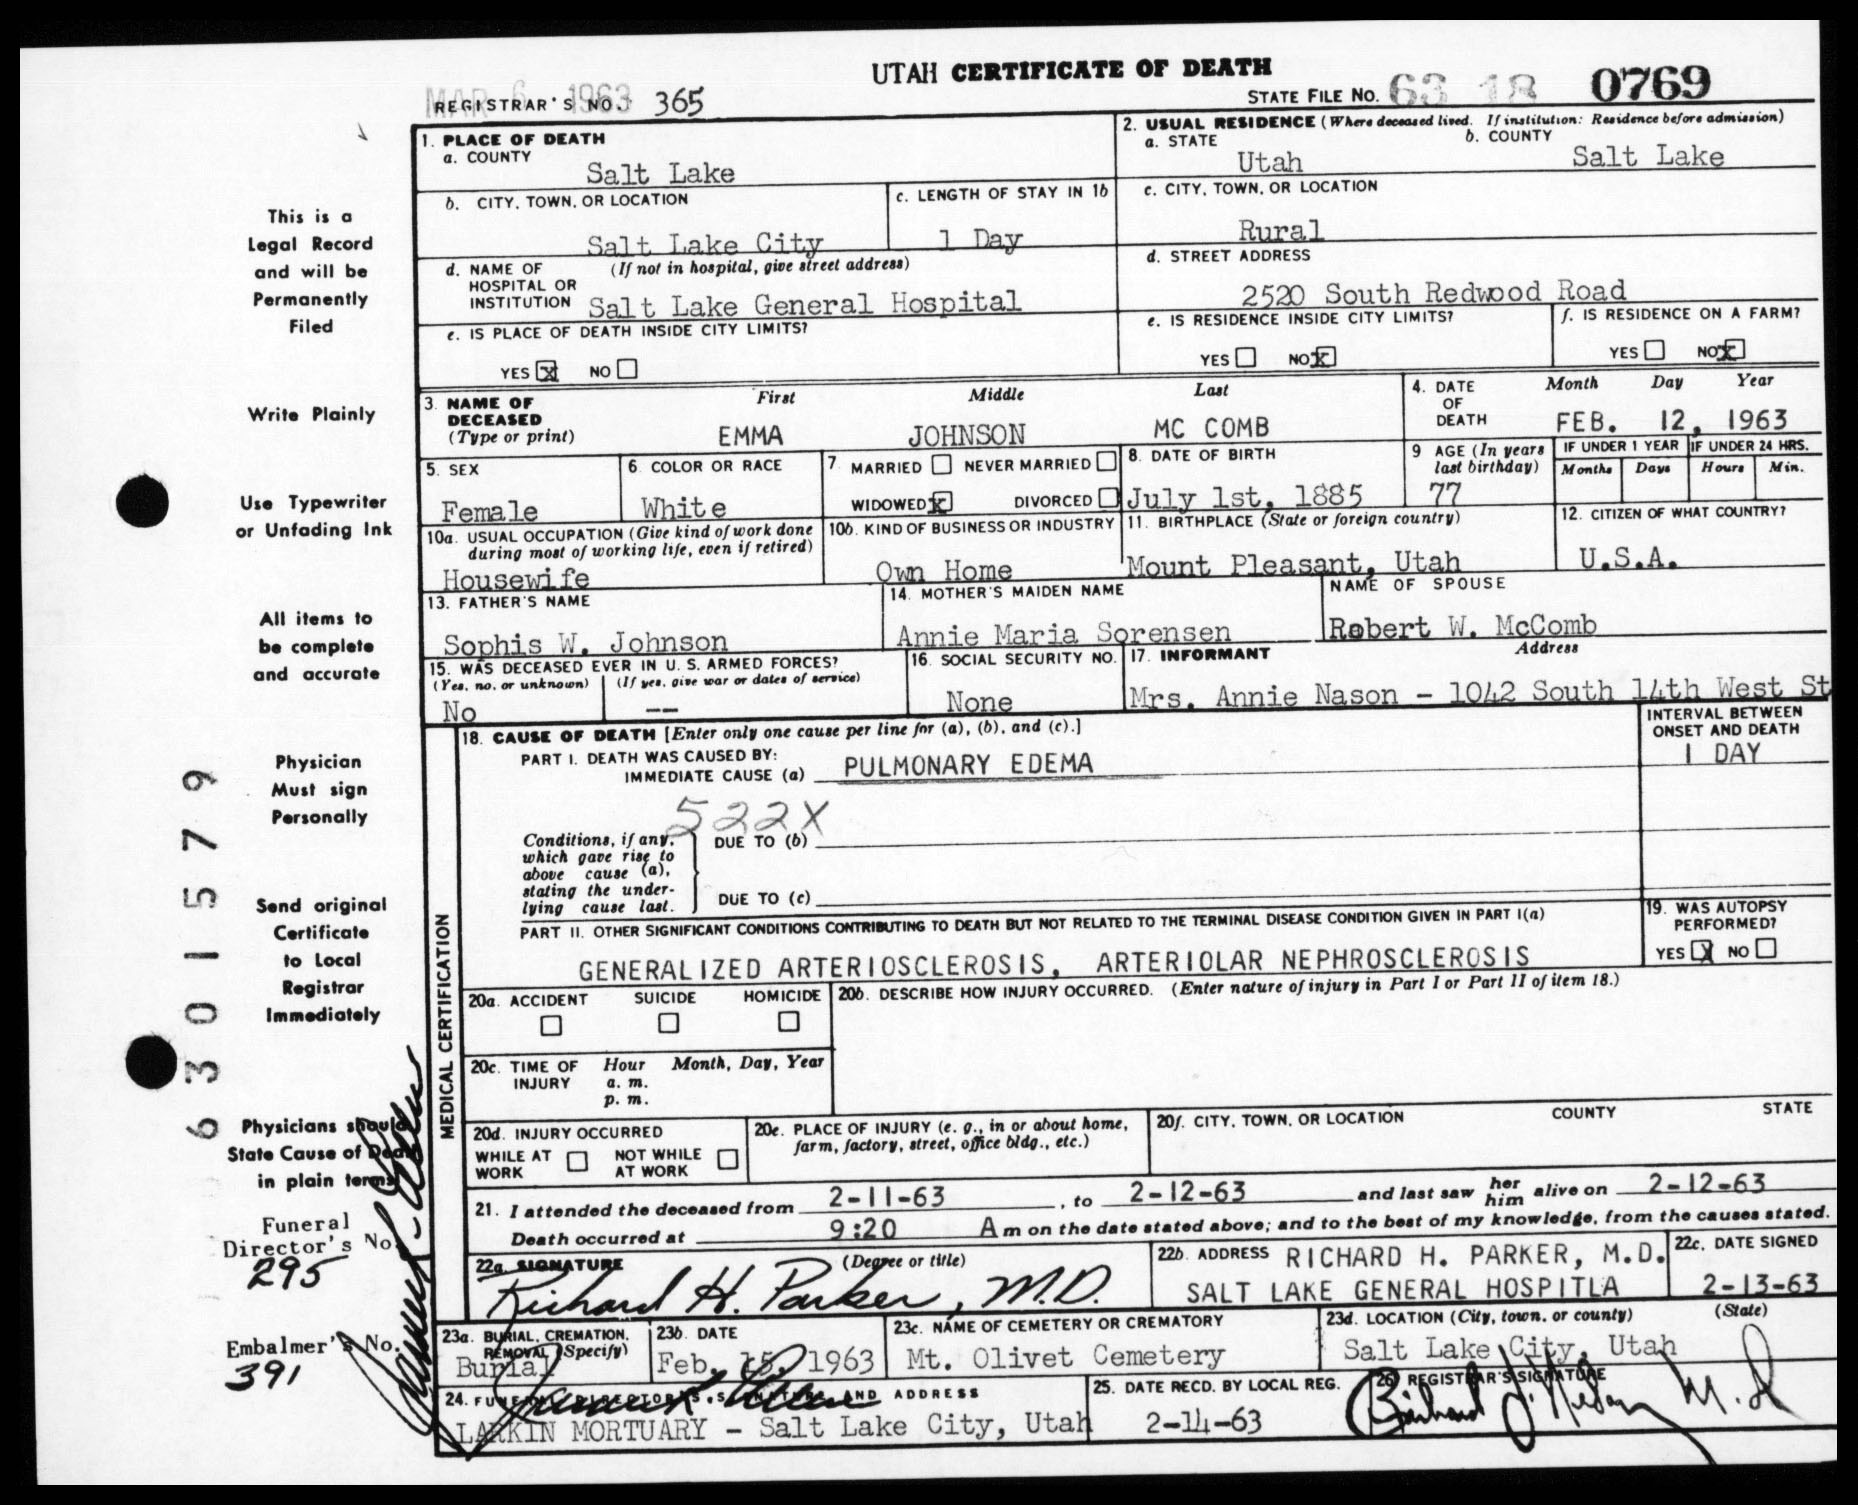 UTAH CERTIFICATE OF DEATH
MAR 6 1963
REGISTRAR'S NO. 365
STATE FILE NO. 63 18 0769
1. PLACE OF DEATH
a. COUNTY
Salt Lake
2. USUAL RESIDENCE (Where deceased lived. If institution: Residence before admission)
a. STATE
Utah
b. COUNTY
Salt Lake
b. CITY, TOWN, OR LOCATION
Salt Lake City
c. LENGTH OF STAY IN 1b
1 Day
c. CITY, TOWN, OR LOCATION
Rural
d. NAME OF HOSPITAL OR INSTITUTION (If not in hospital, give street address)
Salt Lake General Hospital
d. STREET ADDRESS
2520 South Redwood Road
e. IS PLACE OF DEATH INSIDE CITY LIMITS?
YES X NO
e. IS RESIDENCE INSIDE CITY LIMITS?
YES NO X
f. IS RESIDENCE ON A FARM?
YES NO X
3. NAME OF DECEASED (Type or print)
First Middle Last
EMMA JOHNSON MC COMB
4. DATE OF DEATH
Month Day Year
FEB. 12, 1963
5. SEX
Female
6. COLOR OR RACE
White
7. MARRIED NEVER MARRIED
WIDOWED X DIVORCED
8. DATE OF BIRTH
July 1st, 1885
9 AGE (In years last birthday)
77
IF UNDER 1 YEAR
Months Days
IF UNDER 24 HRS.
Hours Min.
10a. USUAL OCCUPATION (Give kind of work done during most of working life, even if retired)
Housewife
10b. KIND OF BUSINESS OR INDUSTRY
Own Home
11. BIRTHPLACE (State or foreign country)
Mount Pleasant, Utah
12. CITIZEN OF WHAT COUNTRY?
U.S.A.
13. FATHER'S NAME
Sophis W. Johnson
14. MOTHER'S MAIDEN NAME
Annie Maria Sorensen
NAME OF SPOUSE
Robert W. McComb
15. WAS DECEASED EVER IN U. S. ARMED FORCES?
(Yes, no, or unknown) (If yes, give war or dates of service)
No --
16. SOCIAL SECURITY NO.
None
17. INFORMANT Address
Mrs. Annie Nason - 1042 South 14th West St
MEDICAL CERTIFICATION
18. CAUSE OF DEATH [Enter only one cause per line for (a), (b), and (c).]
PART I. DEATH WAS CAUSED BY:
IMMEDIATE CAUSE (a) PULMONARY EDEMA
INTERVAL BETWEEN ONSET AND DEATH
1 DAY
522X
Conditions, if any, which gave rise to above cause (a), stating the underlying cause last.
DUE TO (b)
DUE TO (c)
PART II. OTHER SIGNIFICANT CONDITIONS CONTRIBUTING TO DEATH BUT NOT RELATED TO THE TERMINAL DISEASE CONDITION GIVEN IN PART I(a)
GENERALIZED ARTERIOSCLEROSIS, ARTERIOLAR NEPHROSCLEROSIS
19. WAS AUTOPSY PERFORMED?
YES X NO
20a. ACCIDENT SUICIDE HOMICIDE
20b. DESCRIBE HOW INJURY OCCURRED. (Enter nature of injury in Part I or Part II of item 18.)
20c. TIME OF INJURY
Hour Month, Day, Year
a. m.
p. m.
20d. INJURY OCCURRED
WHILE AT WORK NOT WHILE AT WORK
20e. PLACE OF INJURY (e. g., in or about home, farm, factory, street, office bldg., etc.)
20f. CITY, TOWN, OR LOCATION COUNTY STATE
21. I attended the deceased from 2-11-63, to 2-12-63 and last saw her him alive on 2-12-63
Death occurred at 9:20 A m on the date stated above; and to the best of my knowledge, from the causes stated.
22a. SIGNATURE (Degree or title)
Richard H. Parker, M.D.
22b. ADDRESS RICHARD H. PARKER, M.D.
SALT LAKE GENERAL HOSPITLA
22c. DATE SIGNED
2-13-63
23a. BURIAL, CREMATION, REMOVAL (Specify)
Burial
23b. DATE
Feb. 15, 1963
23c. NAME OF CEMETERY OR CREMATORY
Mt. Olivet Cemetery
23d. LOCATION (City, town, or county) (State)
Salt Lake City, Utah
24. FUNERAL DIRECTOR'S SIGNATURE AND ADDRESS
LARKIN MORTUARY - Salt Lake City, Utah
25. DATE RECD. BY LOCAL REG.
2-14-63
26. REGISTRAR'S SIGNATURE
M.D
This is a
Legal Record
and will be
Permanently
Filed
Write Plainly
Use Typewriter
or Unfading Ink
All items to
be complete
and accurate
Physician
Must sign
Personally
Send original
Certificate
to Local
Registrar
Immediately
Physicians should
State Cause of Death
in plain terms
Funeral
Director's No.
295
Embalmer's No.
391
6301579